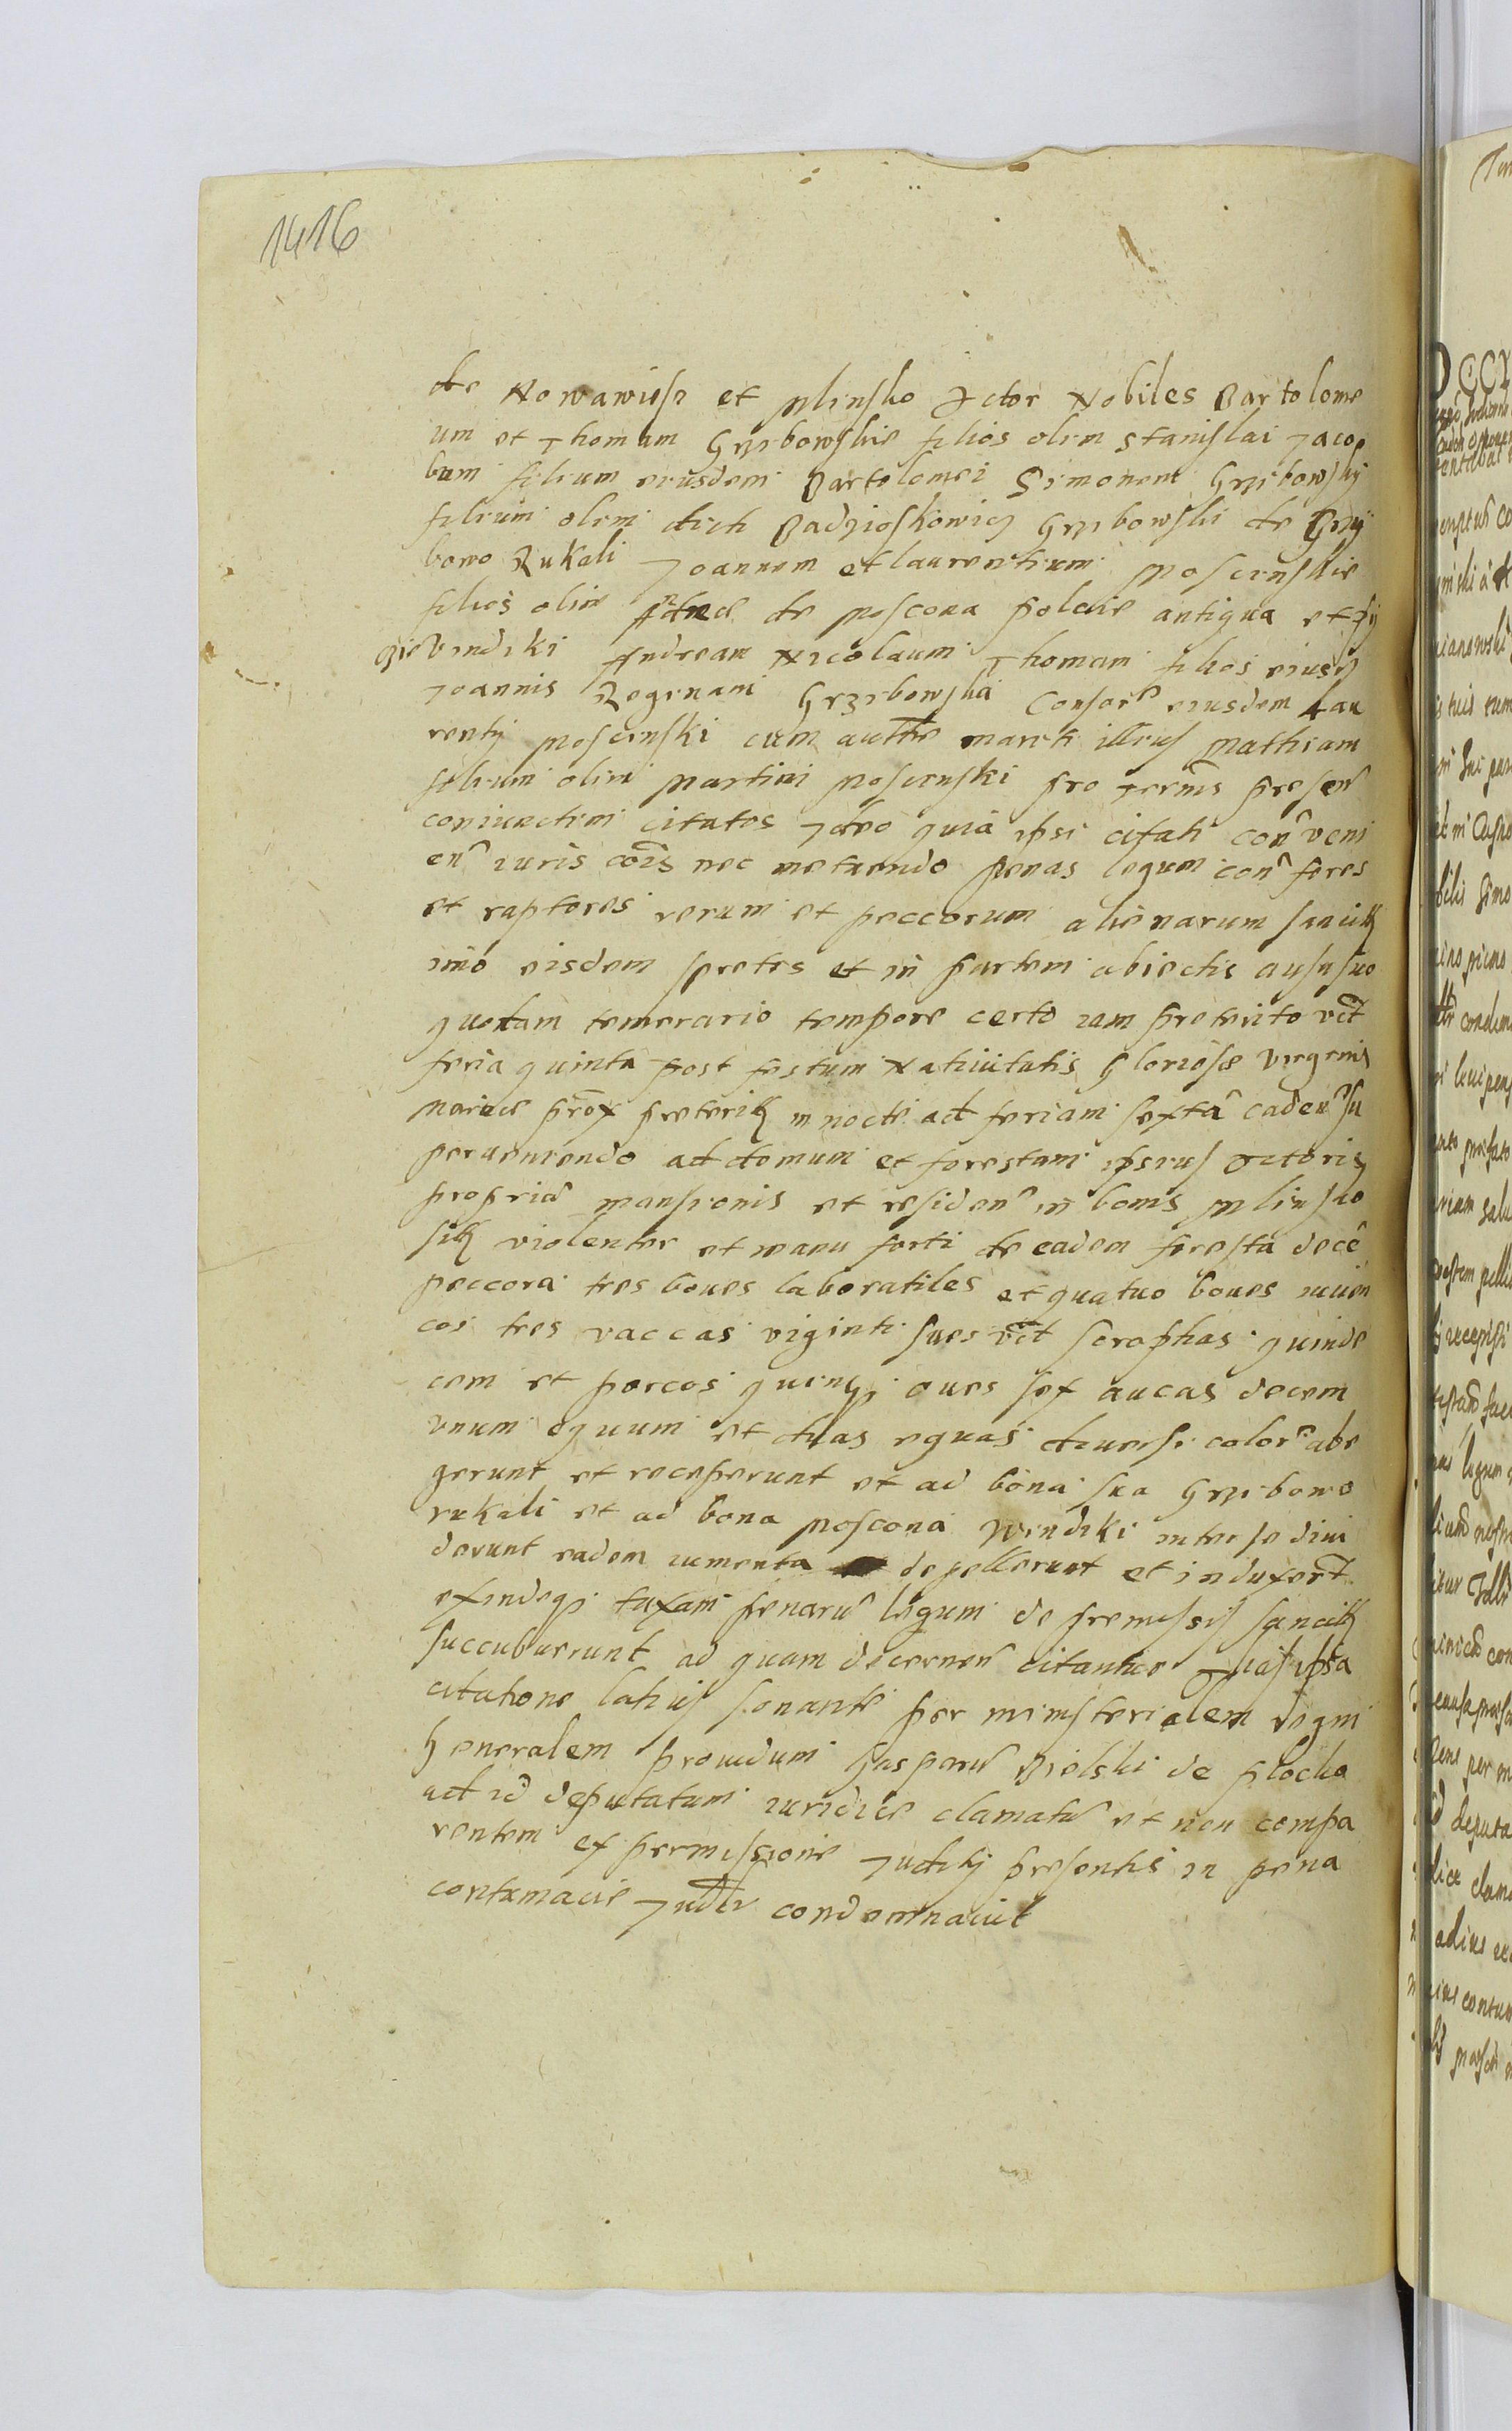 1416
de Nowawiesz et Mlinsko Actor Nobiles Bartolome
um et Thomam Grzibowskie filios olim Stanislai Jaco
bum filium eiusdem Bartolomei Simonem Grzibowskÿ
filium olim dicti Badzioskowicz Grzibowski de Grzÿ
bowo Rukali Joannem et laurentium Moscinskie
filios olim de Moscona polcie antiqua et
Vindiki Andream Nicolaum Thomam filios eiusd
Joannis Reginam Grzibowska Consort eiusdem Lau
rentÿ Moscinski cum autte mariti illius Mathiam
filium olim Martini Moscinski pro Terminis presen
coniunctim citatos Ideo quia ipsi citati con veni
en iuris cois nec metuendo penas legum con fores
et raptores rerum et peccorum alienarum sancitt
imo eisdem spretis et in partem abiectis ausu suo
quodam temerario tempore certo iam preterito vct
feria quinta post festum Natiuitatis Gloriose Virginis
Marie prox preteritt in nocte ad feriam sexta caden su
perueniendo ad domum et forestam ipsius Actoris
propria mansionis et residen in bonis Mlinsko
sitt violenter et manu forti de eadem foresta dece
peccora tres boues laboratiles et quatuo boues iuuen
cos tres vaccas viginti sues vct scrophas quinde
cem et porcos quinqz oues sex aucas decem
vnum equum et duas equas diuersi color abe
gerunt et receperunt et ad bona sua Grzibowo
rukali et ad bona Moscona Windiki inter se diui
derunt eadem iumenta depellerunt et induxert
exindeqz taxam penaru legum de premissis sancitt
succubuerunt ad quam decernen citantur ipsa
citatione latius sonante per ministerialem regni
Generalem prouidum Gasparu Bielski de plocko
ad id deputatum iuridice clamatu et non compa
rentem ex permissione Judicÿ presentis in pena
contumacie Judtr condemnauit